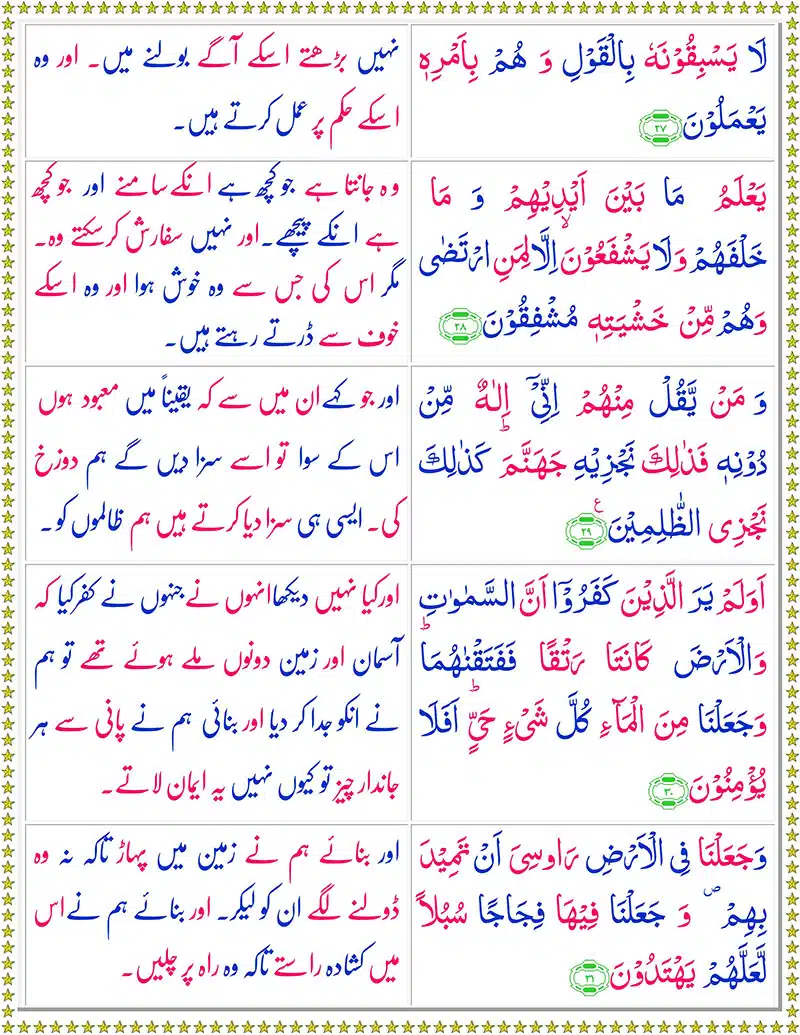 لَا يَسْبِقُوْنَهٗ بِالْقَوْلِ وَ هُمْ بِاَمْرِهٖ
يَعْمَلُوْنَ ﴿۲۷﴾
نہیں بڑھتے اسکے آگے بولنے میں۔ اور وہ
اسکے حکم پر عمل کرتے ہیں۔
يَعْلَمُ مَا بَيْنَ اَيْدِيْهِمْ وَ مَا
خَلْفَهُمْ وَلَا يَشْفَعُوْنَ ۙ اِلَّا لِمَنِ ارْتَضٰى
وَهُمْ مِّنْ خَشْيَتِهٖ مُشْفِقُوْنَ ﴿۲۸﴾
وہ جانتا ہے جو کچھ ہے انکے سامنے اور جو کچھ
ہے انکے پیچھے۔ اور نہیں سفارش کرسکتے وہ۔
مگر اس کی جس سے وہ خوش ہوا اور وہ اسکے
خوف سے ڈرتے رہتے ہیں۔
وَ مَنْ يَّقُلْ مِنْهُمْ اِنِّيْۤ اِلٰهٌ مِّنْ
دُوْنِهٖ فَذٰلِكَ نَجْزِيْهِ جَهَنَّمَ ؕ كَذٰلِكَ
نَجْزِى الظّٰلِمِيْنَ ﴿۲۹﴾ ع
اور جو کہے ان میں سے کہ یقیناً میں معبود ہوں
اس کے سوا تو اسے سزا دیں گے ہم دوزخ
کی۔ ایسی ہی سزا دیا کرتے ہیں ہم ظالموں کو۔
اَوَلَمْ يَرَ الَّذِيْنَ كَفَرُوْۤا اَنَّ السَّمٰوٰتِ
وَالْاَرْضَ كَانَتَا رَتْقًا فَفَتَقْنٰهُمَا ؕ
وَجَعَلْنَا مِنَ الْمَآءِ كُلَّ شَىْءٍ حَىٍّ ؕ اَفَلَا
يُؤْمِنُوْنَ ﴿۳۰﴾
اور کیا نہیں دیکھا انہوں نے جنہوں نے کفر کیا کہ
آسمان اور زمین دونوں ملے ہوئے تھے تو ہم
نے انکو جدا کر دیا اور بنائی ہم نے پانی سے ہر
جاندار چیز تو کیوں نہیں یہ ایمان لاتے۔
وَجَعَلْنَا فِى الْاَرْضِ رَاوسِىَ اَنْ تَمِيْدَ
بِهِمْ ۪ وَ جَعَلْنَا فِيْهَا فِجَاجًا سُبُلاً
لَّعَلَّهُمْ يَهْتَدُوْنَ ﴿۳۱﴾
اور بنائے ہم نے زمین میں پہاڑ تاکہ نہ وہ
ڈولنے لگے ان کو لیکر۔ اور بنائے ہم نے اس
میں کشادہ راستے تاکہ وہ راہ پر چلیں۔